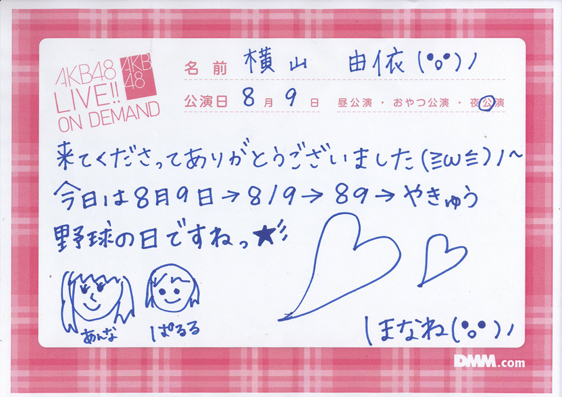 AKB48
LIVE!!
ON DEMAND
AKB
48
名前 横山 由依(°o°)ノ
公演日 8月9日 昼公演・おやつ公演・夜公演
来てくださってありがとうございました(≧ω≦)ノ~
今日は8月9日→8/9→89→やきゅう
野球の日ですねっ★彡
あんな ぱるる
ほなね(°o°)ノ
DMM.com